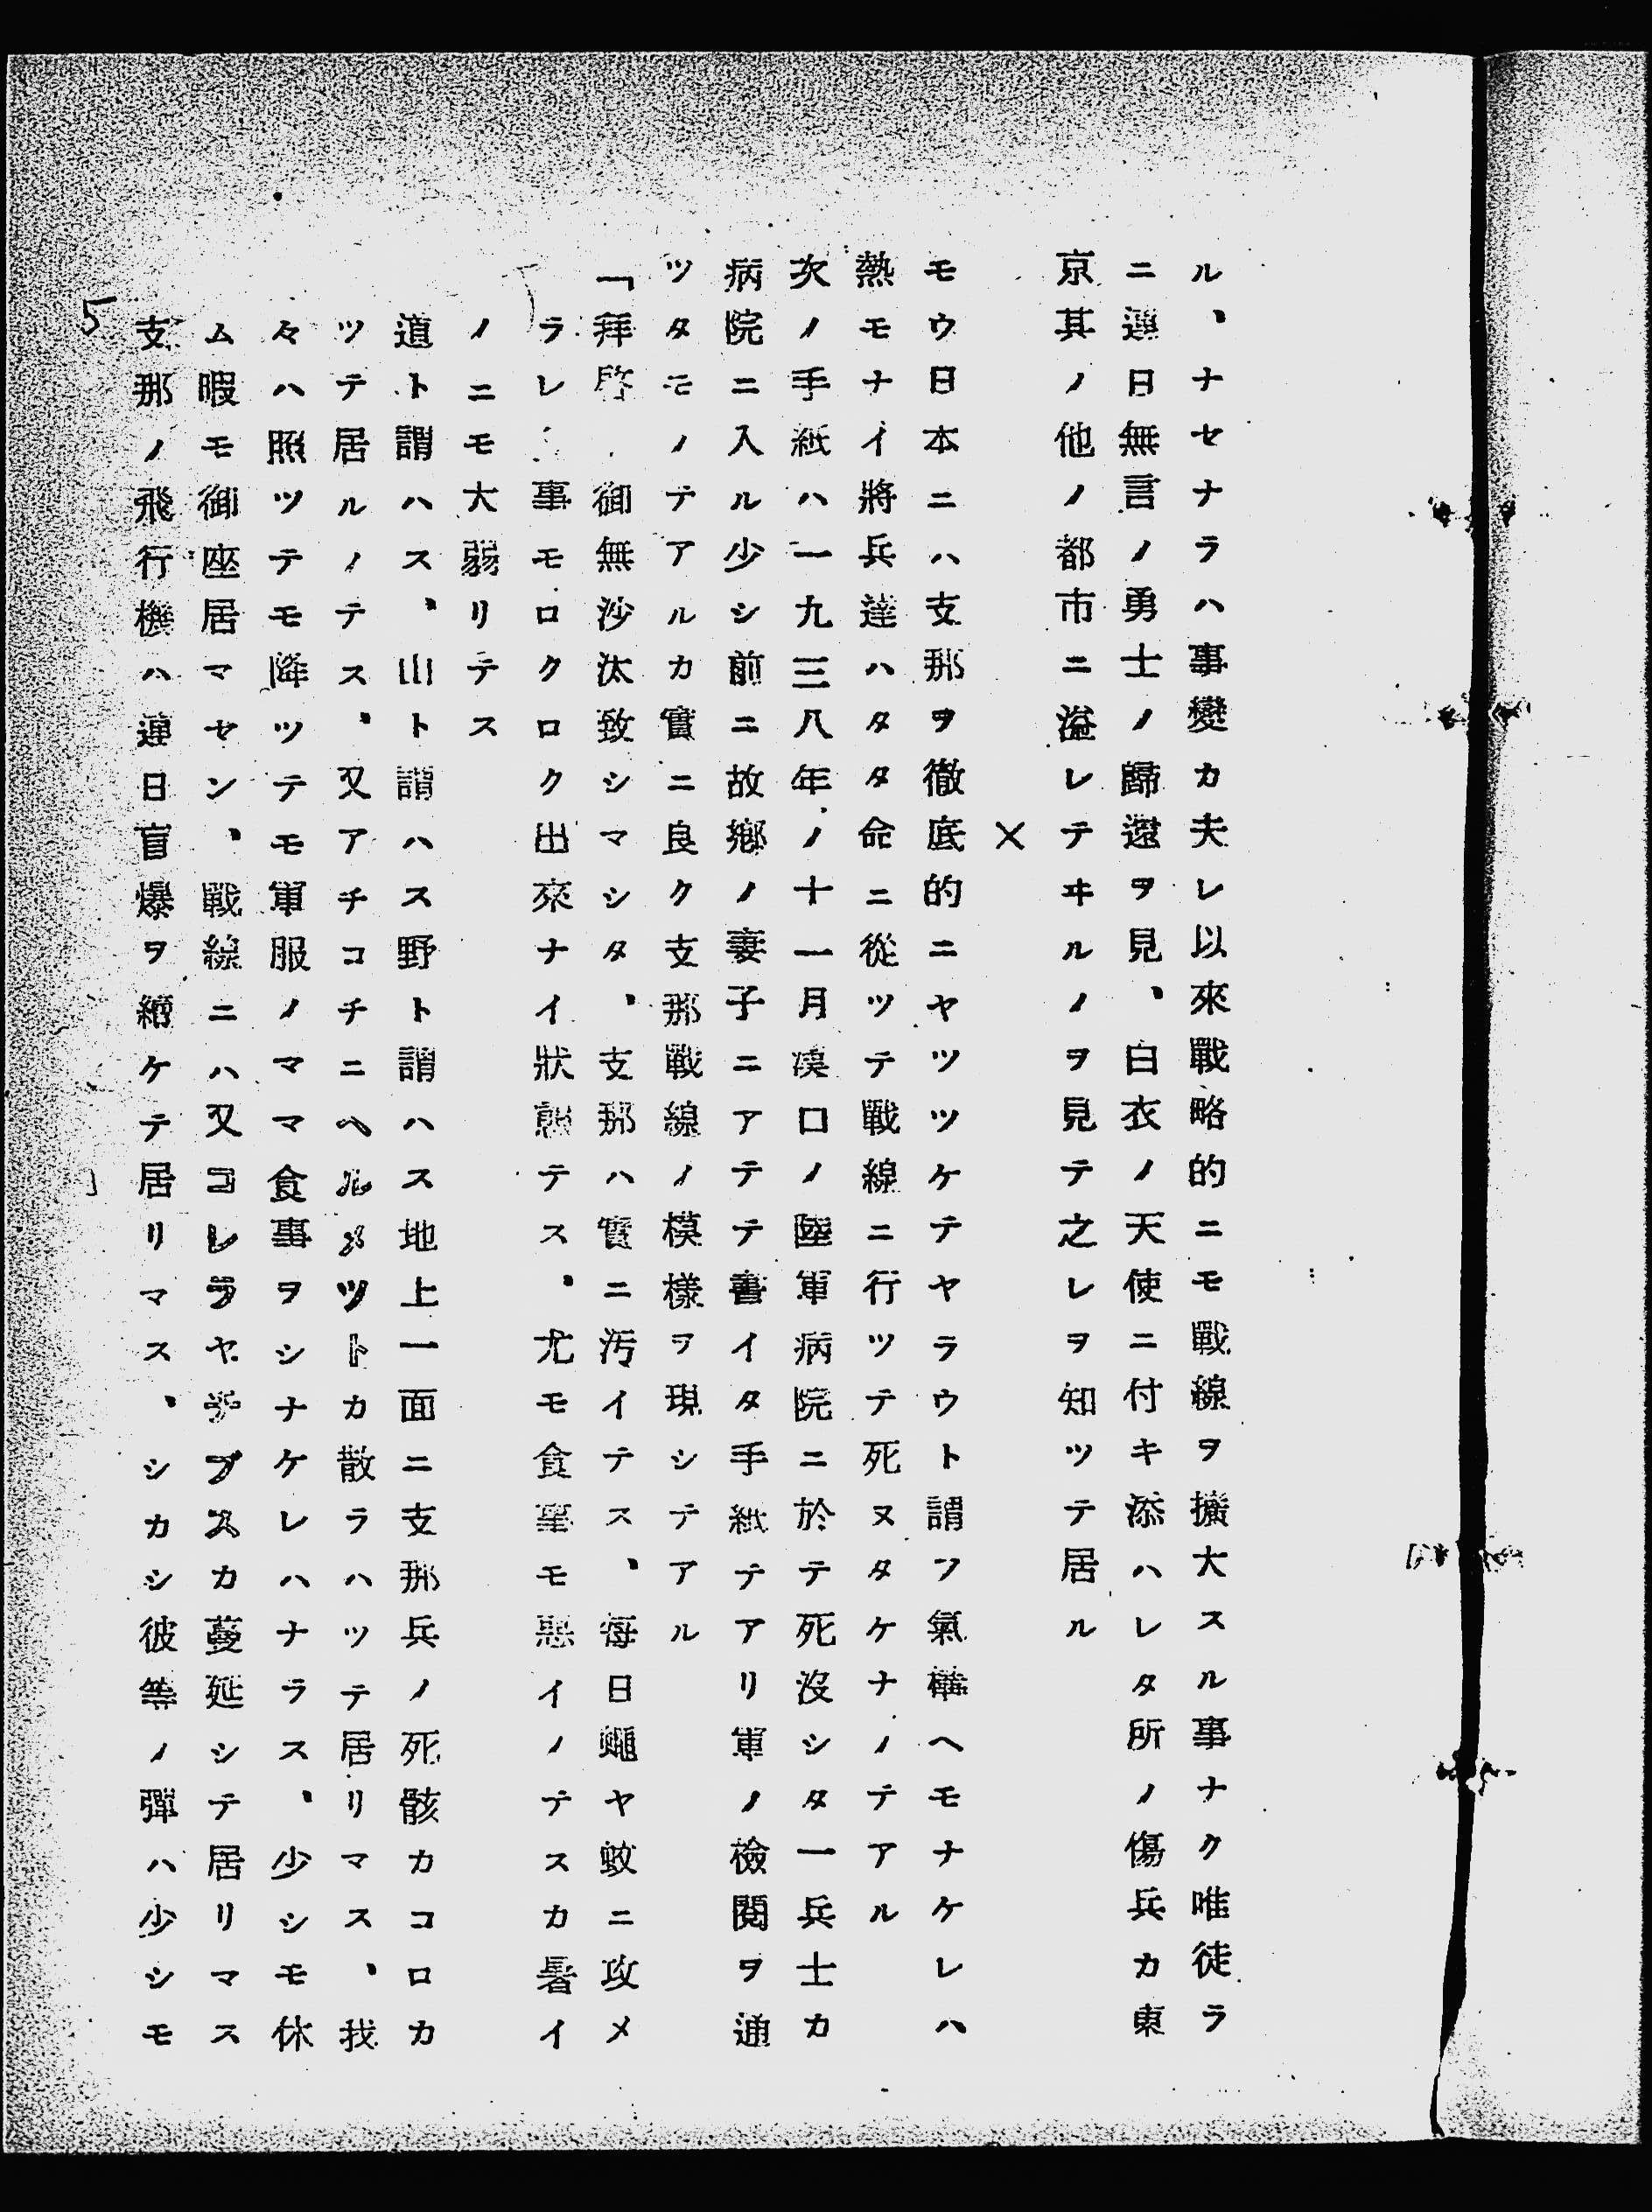 ル、ナセナラハ事變カ夫レ以來戰略的ニモ戰線ヲ擴大スル事ナク唯徒ラ
ニ連日無言ノ勇士ノ歸還ヲ見、白衣ノ天使ニ付キ添ハレタ所ノ傷兵カ東
京其ノ他ノ都市ニ溢レテヰルノヲ見テ之レヲ知ツテ居ル
×
モウ日本ニハ支那ヲ徹底的ニヤツツケテヤラウト謂フ氣構ヘモナケレハ
熱モナイ將兵達ハタタ命ニ從ツテ戰線ニ行ツテ死ヌタケナノテアル
次ノ手紙ハ一九三八年ノ十一月漢口ノ陸軍病院ニ於テ死沒シタ一兵士カ
病院ニ入ル少シ前ニ故鄉ノ妻子ニアテテ書イタ手紙テアリ軍ノ檢閱ヲ通
ツタモノテアルカ實ニ良ク支那戰線ノ模樣ヲ現シテアル
「拜啓 御無沙汰致シマシタ、支那ハ實ニ汚イテス、每日蠅ヤ蚊ニ攻メ
ラレ 事モロクロク出來ナイ狀態テス、尤モ食 モ惡イノテスカ暑イ
ノニモ大弱リテス
道ト謂ハス、山ト謂ハス野ト謂ハス地上一面ニ支那兵ノ死骸カコロカ
ツテ居ルノテス、又アチコチニヘルメツトカ散ラハツテ居リマス、我
々ハ照ツテモ降ツテモ軍服ノママ食事ヲシナケレハナラス、少シモ休
ム暇モ御座居マセン、戰線ニハ又コレラヤチブスカ蔓延シテ居リマス
支那ノ飛行機ハ連日盲爆ヲ續ケテ居リマス、シカシ彼等ノ彈ハ少シモ
5